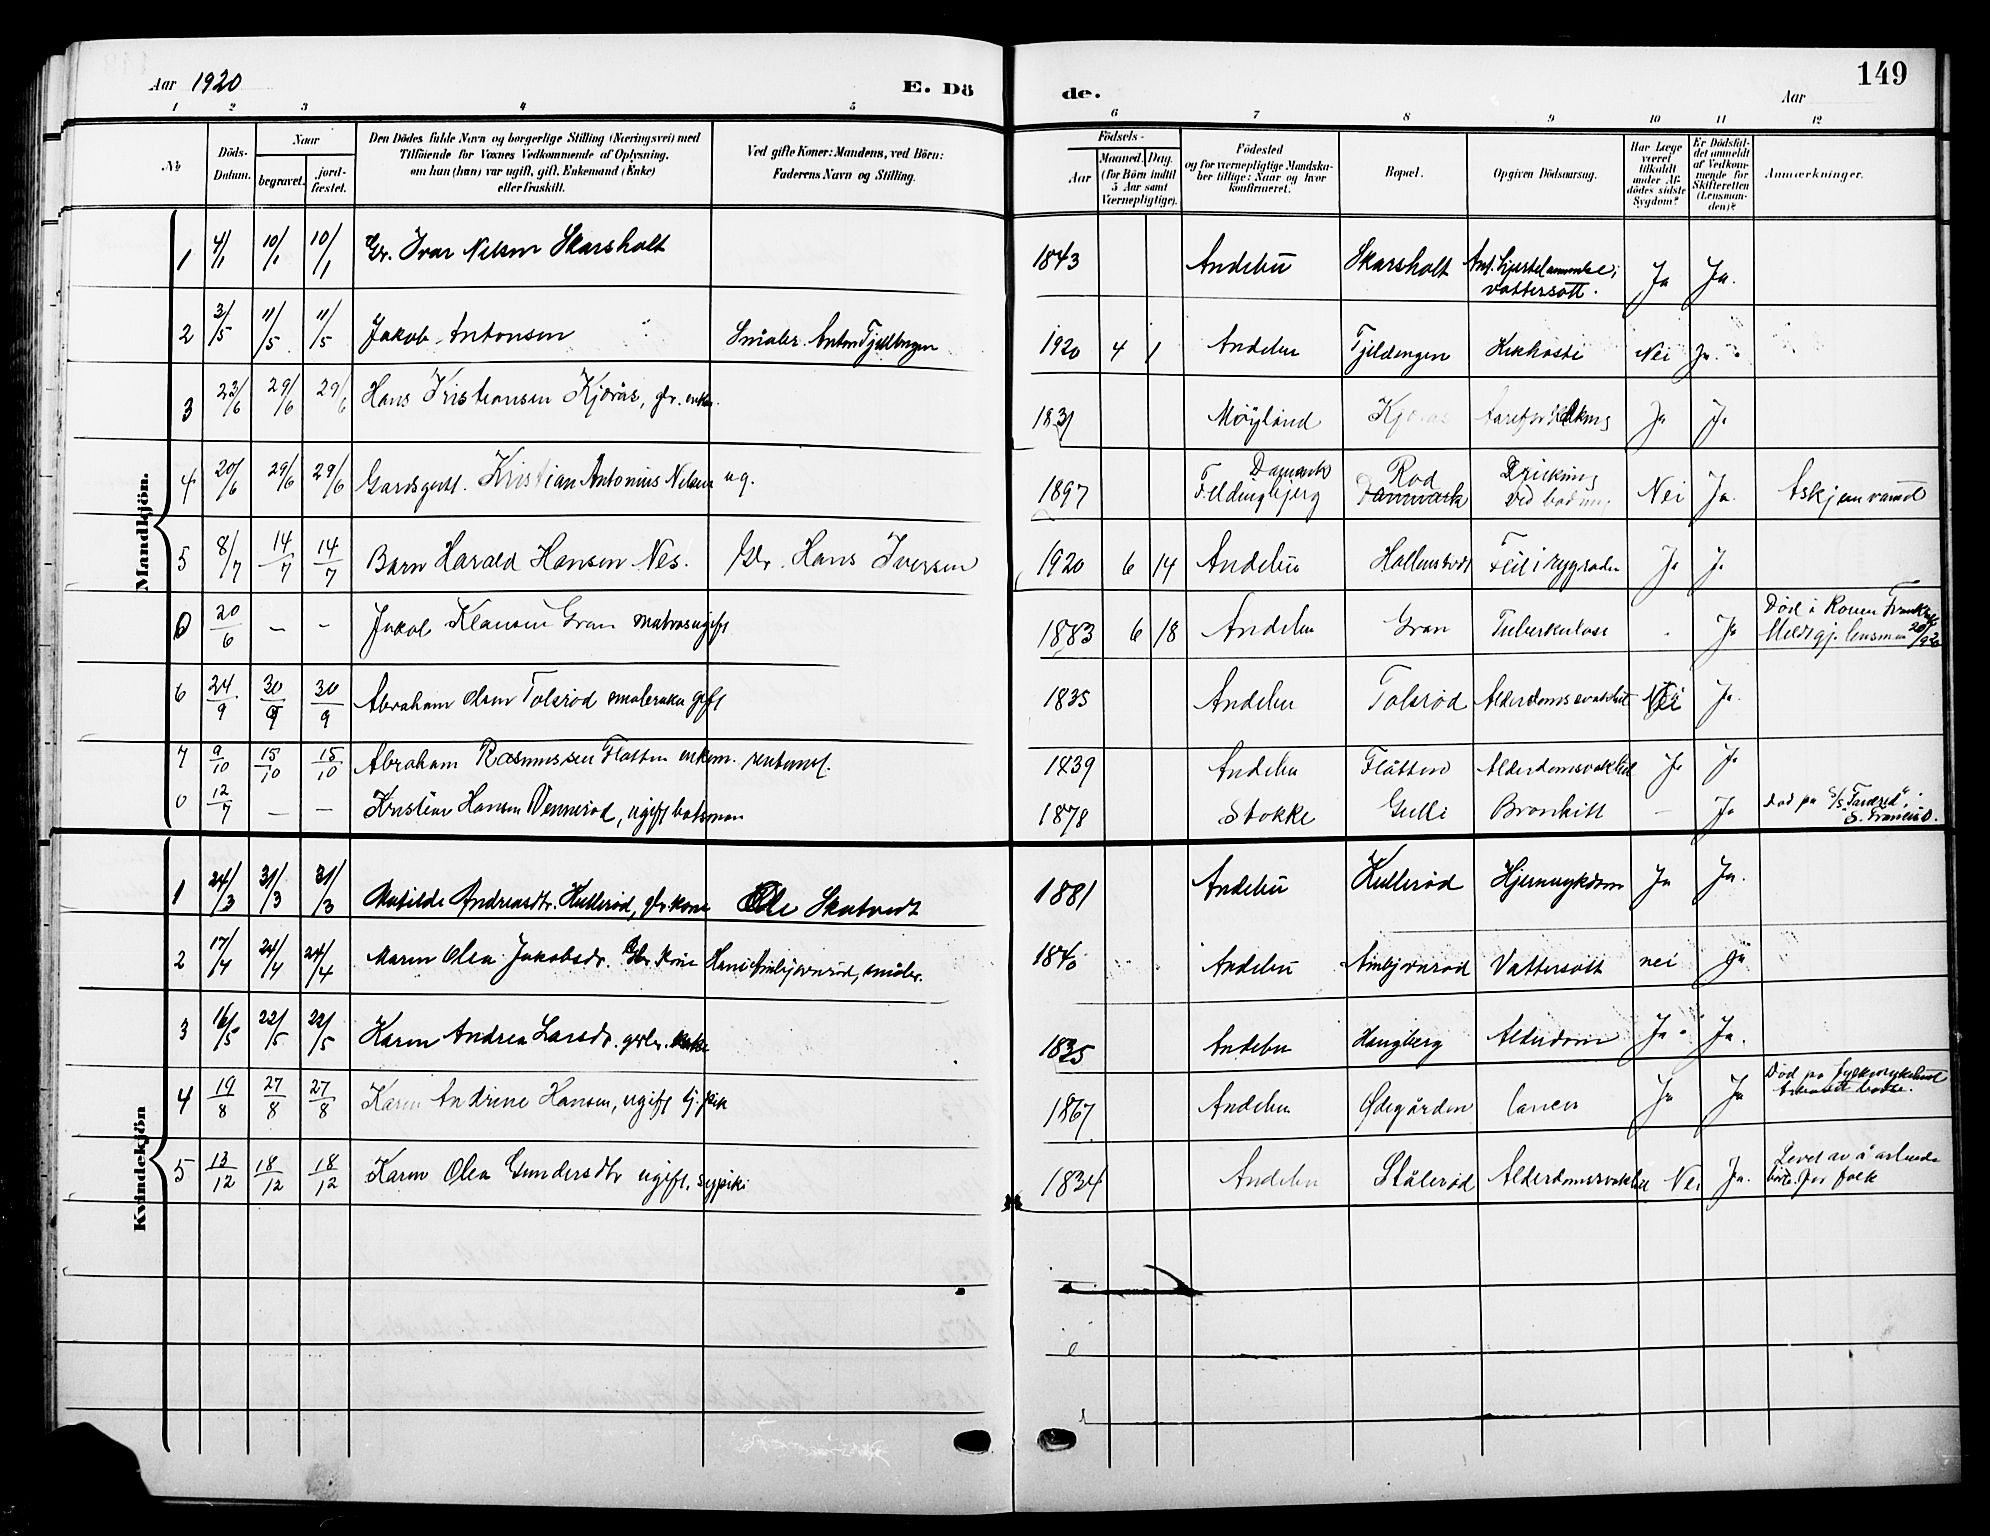 149
Aar 1920
E. Dö
de.
Aar
1 2 3 4 5
6 7 8 9 10 11 12
No.
Döds-Datum.
Naar
begravet.
jordfæstet.
Den Dödes fulde Navn og borgerlige Stilling (Næringsvei) med Tilföiende for Voxnes Vedkommende af Oplysning, om han (hun) var ugift, gift, Enkemand (Enke) eller fraskilt.
Ved gifte Koner: Mandens, ved Börn: Faderens Navn og Stilling.
Födsels-
Aar
Maaned. Dag.
(for Börn indtil 5 Aar samt Værnepligtige).
Födested og for værnepligtige Mandskaber tillige: Naar og hvor konfirmeret.
Bopæl.
Opgiven Dödsaarsag.
Har Læge været tilkaldt under Afdödes sidste Sygdom?
Er Dödsfaldet anmeldt af Vedkommende for Skifteretten (Lensmanden)?
Anmærkninger.
Mandkjön.
1 4/1 10/1 10/1 Gr. Ivar Nelsen Skarsholt 1843 Andebu Skarsholt vattersott. Ja Ja.
2 3/5 11/5 11/5 Jakob Antonsen Småbr. Anton Fjeldengen 1920 4 1 Andebu Fjeldengen Kikhoste Nei Ja.
3 23/6 29/6 29/6 Hans Kristiansen Kjøråс, gbr. enkem. 1831 Møyland Kjøräs Aareforkalkning Ja Ja
4 20/6 29/6 29/6 Gardsgutt. Kristian Antonius Nelsen ug. 1897 Danmark Rød Danmark Drukning ved badning Nei Ja. Askjemvannet
5 8/7 14/7 14/7 Barn Harald Hansen Nes. Gbr. Hans Iversen 1920 6 14 Andebu Hallenstvedt Feil i rygraden Ja Ja
0 20/6 — — Jakob Klausen Gran matros ugift 1883 6 18 Andebu Gran Tuberkulose - Ja Død i Rouen Frankrik
Meld gj. lensman
6 24/9 30/9 30/9 Abraham Olsen Tolsrød gift 1835 Andebu Tolsrød Alderdomssvakhet Nei Ja.
7 9/10 15/10 15/10 Abraham Rasmussen Flåtten enkem. 1839 Andebu Flåtten Alderdomssvakhet Ja Ja
0 12/7 — — Kristian Hansen Vennerød, ugift batsman 1878 Stokke Gulli Bronkitt — Ja død på S/S
S. Francisco.
Kvindekjön
1 24/3 31/3 31/3 Matilde Andreasdtr. Kullerød, gbr. kone Ole Skatvedt 1881 Andebu Kullerød Hjernesykdom Ja Ja.
2 17/4 24/4 24/4 Maren Olea Jakobsdr. Gbr. kone Hans Ambjørnrød, småbr. 1840 Andebu Ambjørnrød Vattersott nei Ja
3 16/5 22/5 22/5 Karen Andrea Larsdr. enke 1835 Andebu Haugberg Alderdom Ja Ja.
4 19/8 27/8 27/8 Karen Andrine Hansen, ugift 1867 Andebu Ødegården Cancer Ja Ja Død på fylkessykehuset
5 13/12 18/12 18/12 Karen Olea Gundersdtr ugift, sypike 1834 Andebu Stålerød Alderdomssvakhet Nei Ja. Levet av å arbeide
borte for folk